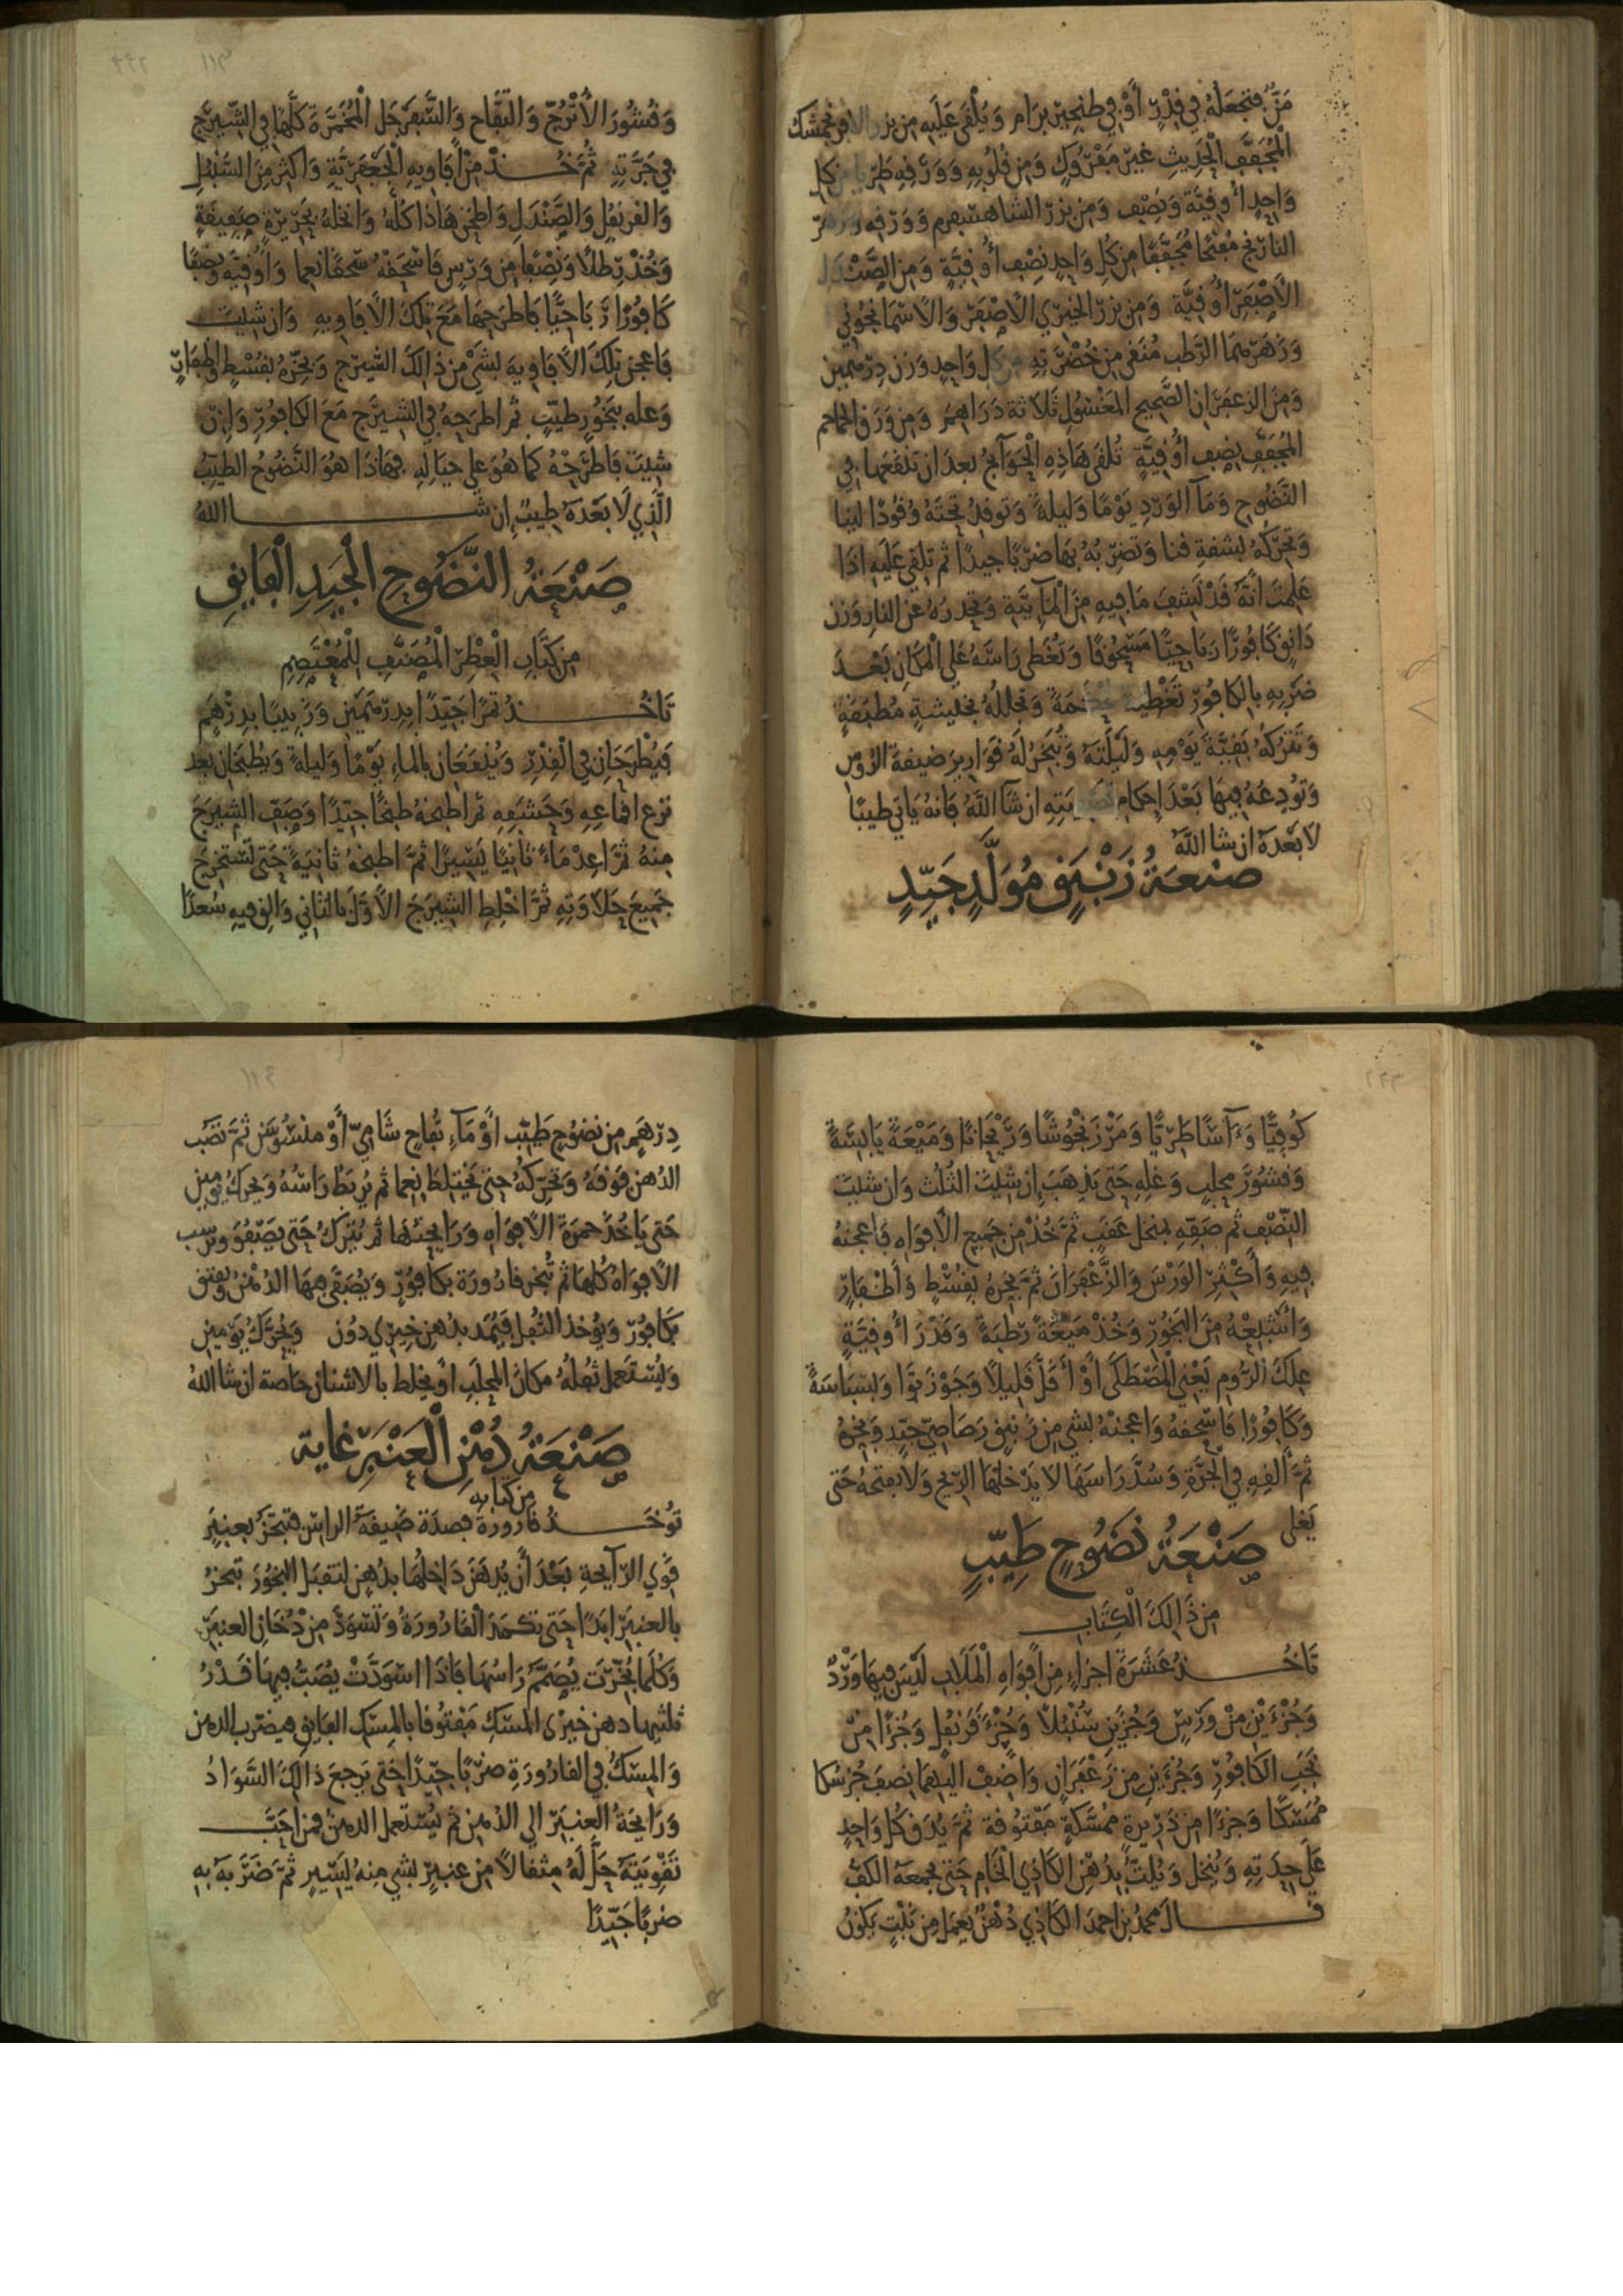 مَرَّ فتجعَلهُ في قِدْرٍ أَوْ في طنجيرٍ برَام وَيُلْقَى عَلَيهِ مِن بزر الافرنجمشك
الْمُجَفَّفِ الْحَدِيثِ غَيرَ مَفْرُوكٍ وَمِن قُلُوبِهِ وَوَرَقِهِ طَرِيا من كل
وَاحِدٍ أُوقِيَّة وَنِصْف وَمِن بزر الشاهسبرم وَوَرَقِه وزهر
النارنج مُفتَّحًا مُجَفَّفًا مِن كُلِّ وَاحِدٍ نِصْف أُوقِيَّةٍ وَمِنَ الصَّنْدَل
الأَصْفَرِ أُوقِيَّة وَمِن بزر الخيري الأَصْفَر وَالأسمَانجُوني
وَزَهرهمَا الرَّطب مُنَقى مِن خُضْرَتِهِ من كل وَاحِدٍ وَزن دِرْهمين
وَمِنَ الزعفرَانِ الصَّحِيح المغسُولِ ثَلاثَة دَرَاهِمَ وَمِن وَرَق الحماحم
المُجَفَّفِ نِصْف أُوقِيَّةٍ تُلقى هَاذِهِ الْحَوَآئج بعدَ ان تنقعهَا في
النَّضُوحِ وَمَآ الوَرْدِ يَوْمًا وَلَيلَةً وَتوقِدُ تحتَهُ وُقُودًا لينا
وَتُحَرِّكهُ بشقةِ قنا وَتَضربُهُ بهَا ضربًا جيدًا ثم تلقى عَلَيهِ اذَا
عَلِمْتَ أَنَّهُ قَدْ نَشِفَ مَا فِيهِ مِنَ الْمَآئِيَّةِ وَتحدرُهُ عَن النار وَزن
دَانِق كَافُورًا رَبَاحِيًّا مَسْحُوقًا وَتُغَطى رَاسَهُ عَلى الْمَكَانِ بَعْدَ
ضَربهِ بالكافورِ تَغْطِيَة محكمَةً وَتجللهُ بخيشةٍ مُطبَقَةٍ
وَتترَكهُ بَقِيَّةَ يَوْمِهِ وَلَيْلَتَهُ وَتُبَخِّرُ لَهُ قَوَارِيرَ ضَيقَة الرُّوس
وَتُودِعُهُ فِيهَا بَعْدَ إِحكَامِ تصفيتِهِ ان شَآ اللَّهُ فَانهُ يَاتي طيبًا
لَا بَعْدَهُ ان شا اللَّهُ
صَنْعَةُ زَنْبَقٍ مُوَلَّدٍ جَيِّدٍ
وَقُشُورَ الأُتْرُجِّ وَالتُّفَّاحِ وَالسَّفَرْجَلِ الْمُخَمَّرَة كلَّهَا في الشَّيرَجِ
في جَرَّتِهِ ثُمَّ خُذْ مِنْ أَفَاوِيهِ الْجَعْفَرِيَّةِ وَاكثر مِنَ السُّنْبُلِ
وَالقرنفلِ وَالصَّنْدَلِ وَاطحَن هَاذَا كلَّهُ وَانخلهُ بحَرِيرَةٍ صَفِيقَةٍ
وَخُذْ رِطْلًا وَنِصْفًا مِن وَرْسٍ فَاسْحَقْهُ سَحقًا نعِما وَأُوقيَّة وَنصْفًا
كَافُورًا رَبَاحِيًّا فاطرَحهَا مَعَ تِلكَ الأَفَاوِيهِ وَان شيت
فَاعجن تِلكَ الأَفَاوِيهَ بشَئٍ مِن ذَالِكَ الشيرَج وَبخِّرهُ بقُسْطٍ وَاظفَارٍ
وَعله ببَخُورٍ طيّبٍ ثم اطرَحهُ في الشيرَج مَعَ الكَافُورِ وَان
شيت فَاطرَحْهُ كمَا هُوَ عَلى حيَالِهِ فهَاذَا هُوَ النَّضُوحُ الطَّيِّبُ
الَّذِي لَا بَعْدَهُ طِيبٌ إن شا اللهُ
صَنْعَةُ النَّضُوحِ الْجَيِّدِ الْفَايِقِ
مِن كِتَابِ الْعِطْرِ الْمُصَنَّفِ لِلْمُعْتَصِمِ
تَاخُذُ تمرًا جَيّدًا بدرهَمَين وَزَبيبًا بدِرْهَمٍ
فيُطْرَحَانِ في القِدْرِ وَيُنقَعَان بالماءِ يَوْمًا وَليلةً وَيُطبَخَان بعد
نزع اقماعِهِ وَحَشَفِهِ ثم اطبخهُ طبخًا جيّدًا وَصَفِّ الشيرَجَ
مِنهُ ثمَّ أعِدْ مَاءً ثانِيًا يَسِيرًا ثمَّ اطبخهُ ثانيَةً حَتى تستخرجَ
جَمِيعَ حَلاوَتِهِ ثمَّ اخْلِطِ الشِيرَجَ الأَوّلَ بالثاني وَالق فيهِ سُعدًا
كُوفِيًّا وَءَآسًا طَرِيًّا وَمَرْزَنجُوشًا وَرَيْحَانًا وَمَيْعَةً يَابِسَةً
وَقشُورَ مَحلبٍ وَغلهِ حَتى يَذهَبَ إن شِيتَ الثُّلُث وَان شيتَ
النِّصْف ثم صَفِّهِ بمنخل عقبٍ ثمَّ خُذْ مِن جَمِيع الأَفوَاهِ فَاعجنهُ
فِيهِ وَأَكْثِرِ الوَرْسَ وَالزَّعْفَرَانَ ثمَّ بخرهُ بقُسْطٍ وَأَظْفَارٍ
وَأشْبِعْهُ مِنَ البَخُورِ وَخُذْ مَيعَةً رَطبَةً وَقدْرَ أُوقِيَّةٍ
عِلكَ الرُّومِ يَعْني المَصْطَكَى أَوْ أَقَلَّ قَلِيلًا وَجَوْزَ بَوَّا وَبسبَاسَةً
وَكَافُورًا فَاسْحَقهُ وَاعجنهُ بشئٍ مِن زنبقٍ رَصَاصِيّ جَيّدٍ وَبخرهُ
ثمَّ أَلقِهِ في الجَرَّةِ وَسُدَّ رَاسَهَا لَا يَدْخلهَا الرِّيح وَلا يفتحهُ حَتى
يَغلى
صَنْعَةُ نَضُوحٍ طَيِّبٍ
مِن ذَالِكَ الْكِتَابِ
تَاخُذُ عَشَرَةَ اجزاءٍ مِن أَفوَاهِ الْمَلَابِ لَيْسَ فِيهَا وَرْدٌ
وَجُزْءَيْنِ مِنْ وَرْسٍ وَجُزءَينِ سُنْبُلًا وَجُزْءَ قَرَنفُلٍ وَجُزءًا مِنْ
نجَبِ الكَافُورِ وَجُزءَينِ مِن زَعْفَرَانٍ وَاضِفْ اليهمَا نصفَ جُزءِ سكا
مُمَسَّكًا وَجُزءًا مِن ذَرِيرةٍ ممَسَّكةٍ مَفْتُوقةٍ ثمَّ يُدَقُّ كلُّ وَاحِدٍ
عَلَى حِدَتِهِ وَيُنخَلُ وَيُلتُّ بدُهْنِ الكَاذِي الْخَام حَتى يجمعَهُ الكفُّ
قال محمدُ بن احمدَ الكاذِي دُهنٌ يُعمَل مِن نَبْتٍ يَكونُ
دِرْهَمٍ مِن نضُوحٍ طَيِّبٍ أَوْ مَآءِ تُفاحٍ شَامِيّ أَوْ مَيْسُوسَن ثمَّ تَصُب
الدُهن فَوقهُ وَتحَرّكهُ حتى يَختلِطَ نِعِما ثم يُربَطُ رَاسُهُ وَيحرك يَومين
حَتى يَاخُذ حمرَةَ الأَفوَاهِ وَرَايحَتهَا ثمَّ يُترَكُ حَتى يَصْفُوَ وَيرسب
الأَفوَاه كلهَا ثم تُبخر قارُورَة بكافُورٍ وَيُصَفى فِيهَا الدُهْنُ وَيفتق
بكَافُورٍ وَيُوخذ الثفل فيُمَد بدُهنِ خِيرِي دُون وَيُحَرَّكُ يَوْمين
وَيُسْتَعمل ثُفلُهُ مَكانَ المحلَبِ أَوْ يخلط بالاشنانِ خاصة ان شا اللهُ
صَنْعَةُ دُهْنِ الْعَنْبَرِ غاية
مِن كتابه
تُوخَذُ قارُورَة فصدَة ضَيقَةُ الراس فتبخرُ بعنبرٍ
قَوِي الرَّآيحَةِ بَعْدَ أن يُدهَنَ دَاخلهَا بدُهنٍ لتقبَل البخُورَ تبخرُ
بالعنبَر ابَدًا حَتى تكمَدَ القَارُورَةُ وَتَسْوَدَّ مِنْ دُخَانِ العنبَرِ
وَكلمَا بُخِّرَت يُصَمَّمُ رَاسُهَا فَاذَا اسْوَدَّتْ يُصَبُّ فِيهَا قَدْرُ
ثلثيهَا دهن خيري المسْكِ مَفتُوقًا بالمِسْكِ الفَايِقِ فيضرَب الدهن
وَالمِسْكُ في القارُورَةِ ضَربًا جَيّدًا حَتى يَرجعَ ذَالِكَ السَّوَادُ
وَرَايحَةُ العنبَرِ الى الدُهنِ ثم يُسْتعمل الدهن فمن احَبَّ
تَقْوِيَتهُ حَلَّ لَهُ مِثقالًا مِن عنبرٍ بشئٍ مِنهُ يَسِيرٍ ثمَّ ضَرَبهُ بهِ
ضربًا جَيِّدًا